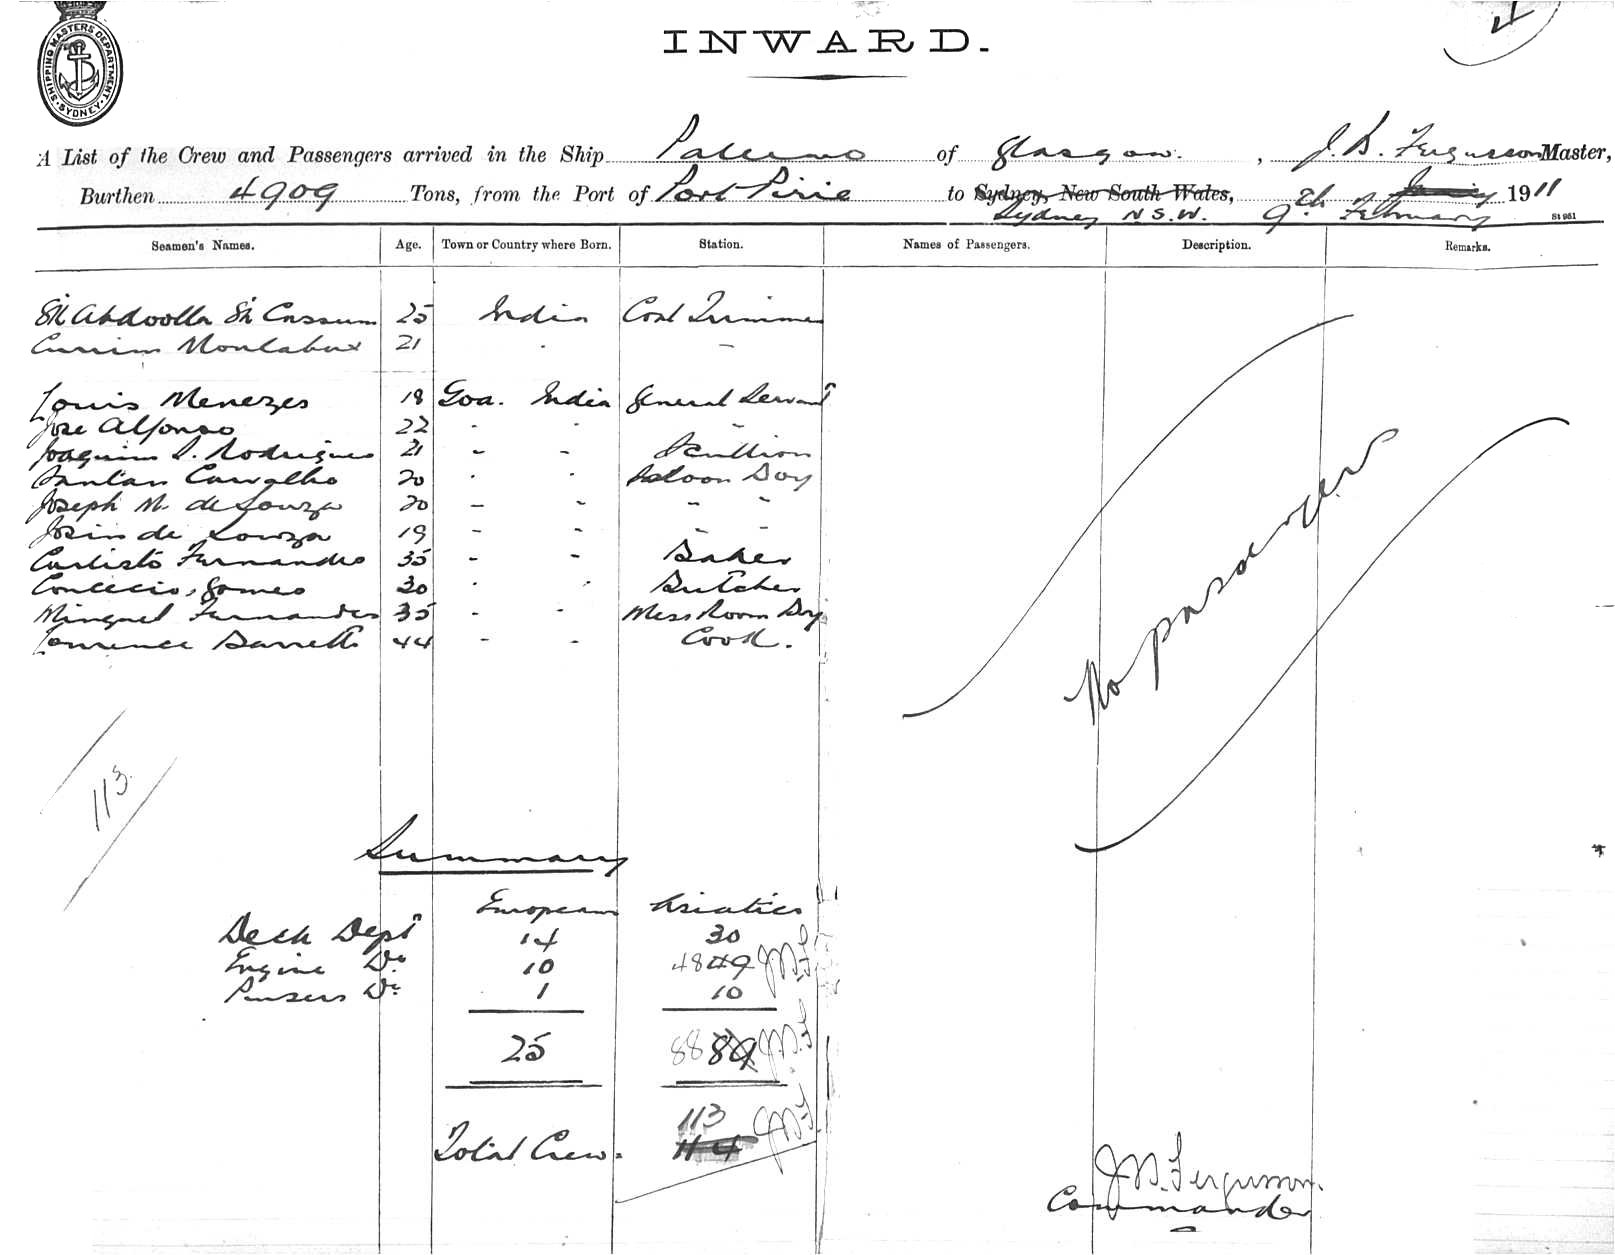 SHIPPING MASTERS DEPARTMENT. SYDNEY
INWARD.
A List of the Crew and Passengers arrived in the Ship Palermo of Glasgow. , J. B. Fergusson Master,
Burthen 4909 Tons, from the Port of Port Pirie to Sydney, New South Wales, 1911
Sydney N.S.W. 9th February
Seamen's Names. Age. Town or Country where Born. Station. Names of Passengers. Description. Remarks.
Sk Abdoolla Sk Cassum 25 India Coal Trimmer
Currim 21 " "
Louis Menezes 18 Goa. India General Servant
Jose Alfonso 22 " " "
Joaquim S. Rodrigues 21 " " Scullion
Santan Carvalho 20 " " Saloon Boy
Joseph M. de Souza 20 " " " "
de Souza 19 " " " "
Fernandes 35 " " Baker
Gomes 30 " " Butcher
Minguel Fernandes 35 " " Mess Room Boy
Lourence Barretto 44 " " Cook.
No passengers
113
Summary
European Asiatics
Deck Dept 14 30
Engine Do 10 48 49
Pursers Do 1 10
25 88 89
113
Total Crew. 114
J. B. Fergusson.
Commander